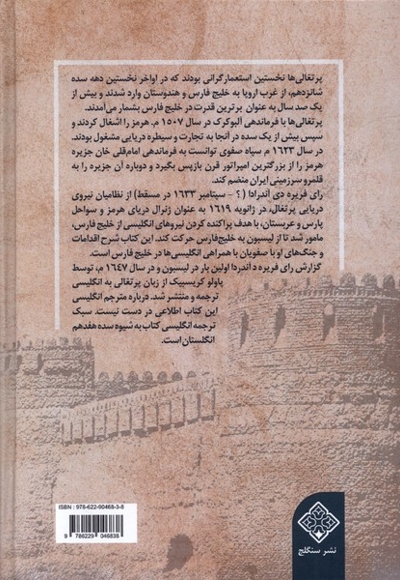 پرتغالی‌ها نخستین استعمارگرانی بودند که در اواخر نخستین دهه سده
شانزدهم، از غرب اروپا به خلیج فارس و هندوستان وارد شدند و بیش از
یک صد سال به عنوان برترین قدرت در خلیج فارس بشمار می‌آمدند.
پرتغالی‌ها با فرماندهی آلبوکرک در سال ۱۵۰۷ م. هرمز را اشغال کردند و
سپس بیش از یک سده در آنجا به تجارت و سیطره دریایی مشغول بودند.
در سال ۱۶۲۳ م. سپاه صفوی توانست به فرماندهی امامقلی خان جزیره
هرمز را از بزرگترین امپراتور قرن بازپس بگیرد و دوباره آن جزیره را به
قلمرو سرزمینی ایران منضم کند.
رای فریره دی آندرادا ( ؟ - سپتامبر ۱۶۳۳ در مسقط) از نظامیان نیروی
دریایی پرتغال، در ژانویه ۱۶۱۹ به عنوان ژنرال دریای هرمز و سواحل
پارس و عربستان، با هدف پراکنده کردن نیروهای انگلیسی از خلیج فارس،
مامور شد تا از لیسبون به خلیج‌فارس حرکت کند. این کتاب شرح اقدامات
و جنگ‌های او با صفویان با همراهی انگلیسی‌ها در خلیج فارس است.
گزارش رای فریره د آندردا اولین بار در لیسبون و در سال ۱۶۴۷ م، توسط
پاولو کریسبیک از زبان پرتغالی به انگلیسی
ترجمه و منتشر شد. درباره مترجم انگلیسی
این کتاب اطلاعی در دست نیست. سبک
ترجمه انگلیسی کتاب به شیوه سده هفدهم
انگلستان است.
ISBN : 978-622-90468-3-8
9 786229 046838
نشر سنگلج